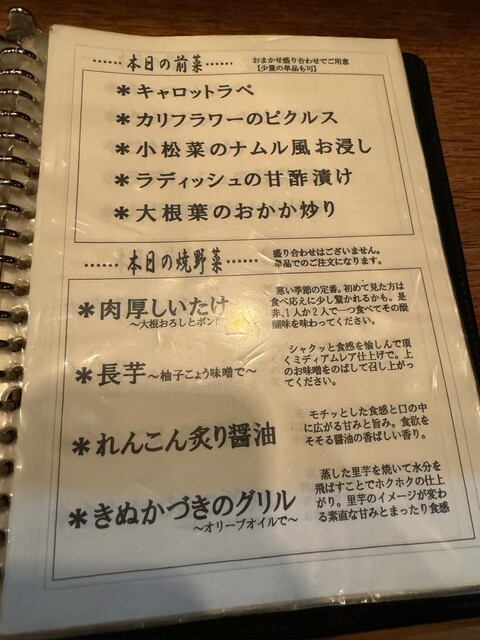 ……本日の前菜……
おまかせ盛り合わせでご用意
【少量の単品も可】
＊キャロットラペ
＊カリフラワーのピクルス
＊小松菜のナムル風お浸し
＊ラディッシュの甘酢漬け
＊大根葉のおかか炒り
……本日の焼野菜……
盛り合わせはございません。
単品でのご注文になります。
＊肉厚しいたけ
～大根おろしとポン
寒い季節の定番。初めて見た方は
食べ応えに少し驚かれるかも。是
非、1人か2人で一つ食べてその醍
醐味を味わってください。
＊長芋～柚子こょう味噌で～
シャクッと食感を愉しんで頂
くミディアムレア仕上げで。上
のお味噌をのばして召し上がっ
てください。
＊れんこん炙り醤油
モチッとした食感と口の中
に広がる甘みと旨み。食欲を
そそる醤油の香ばしい香り。
＊きぬかづきのグリル
～オリーブオイルで～
蒸した里芋を焼いて水分を
飛ばすことでホクホクの仕上
がり。里芋のイメージが変わ
る素直な甘みとまったり食感